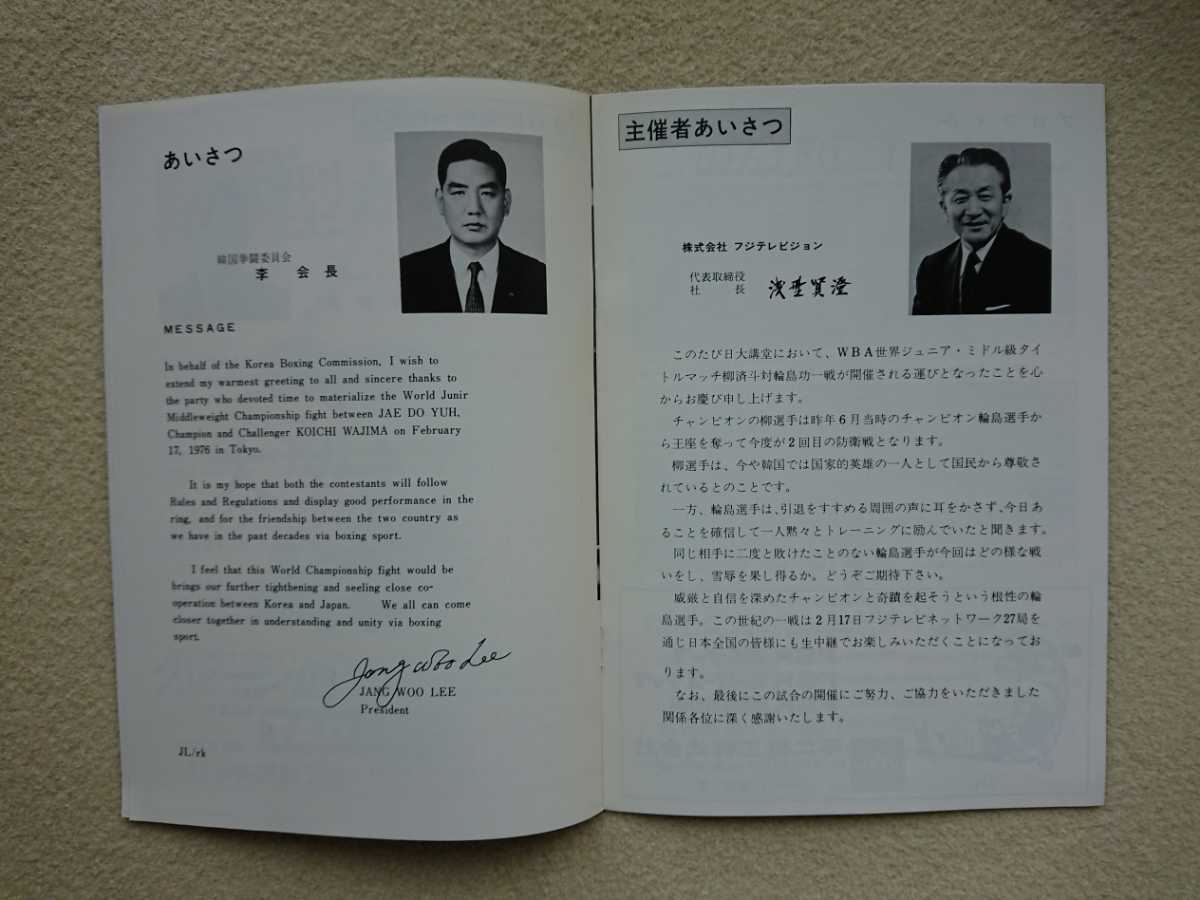 あいさつ
韓国争闘委員会
李 会 長
MESSAGE
In behalf of the Korea Boxing Commission, I wish to
extend my warmest greeting to all and sincere thanks to
the party who devoted time to materialize the World Junir
Middleweight Championship fight between JAE DO YUH,
Champion and Challenger KOICHI WAJIMA on February
17, 1976 in Tokyo.
It is my hope that both the contestants will follow
Rules and Regulations and display good performance in the
ring, and for the friendship between the two country as
we have in the past decades via boxing sport.
I feel that this World Championship fight would be
brings our further tightening and seeling close co-
operation between Korea and Japan. We all can come
closer together in understanding and unity via boxing
sport.
Jang Woo Lee
JANG WOO LEE
President
JL/rk
主催者あいさつ
株式会社 フジテレビジョン
代表取締役
社 長 浅野賢澄
このたび日大講堂において、WBA世界ジュニア・ミドル級タイ
トルマッチ柳済斗対輪島功一戦が開催される運びとなったことを心
からお慶び申し上げます。
チャンピオンの柳選手は昨年6月当時のチャンピオン輪島選手か
ら王座を奪って今度が2回目の防衛戦となります。
柳選手は、今や韓国では国家的英雄の一人として国民から尊敬さ
れているとのことです。
一方、輪島選手は、引退をすすめる周囲の声に耳をかさず、今日あ
ることを確信して一人黙々とトレーニングに励んでいたと聞きます。
同じ相手に二度と敗けたことのない輪島選手が今回はどの様な戦
いをし、雪辱を果し得るか。どうぞご期待下さい。
威厳と自信を深めたチャンピオンと奇蹟を起そうという根性の輪
島選手。この世紀の一戦は2月17日フジテレビネットワーク27局を
通じ日本全国の皆様にも生中継でお楽しみいただくことになってお
ります。
なお、最後にこの試合の開催にご努力、ご協力をいただきました
関係各位に深く感謝いたします。